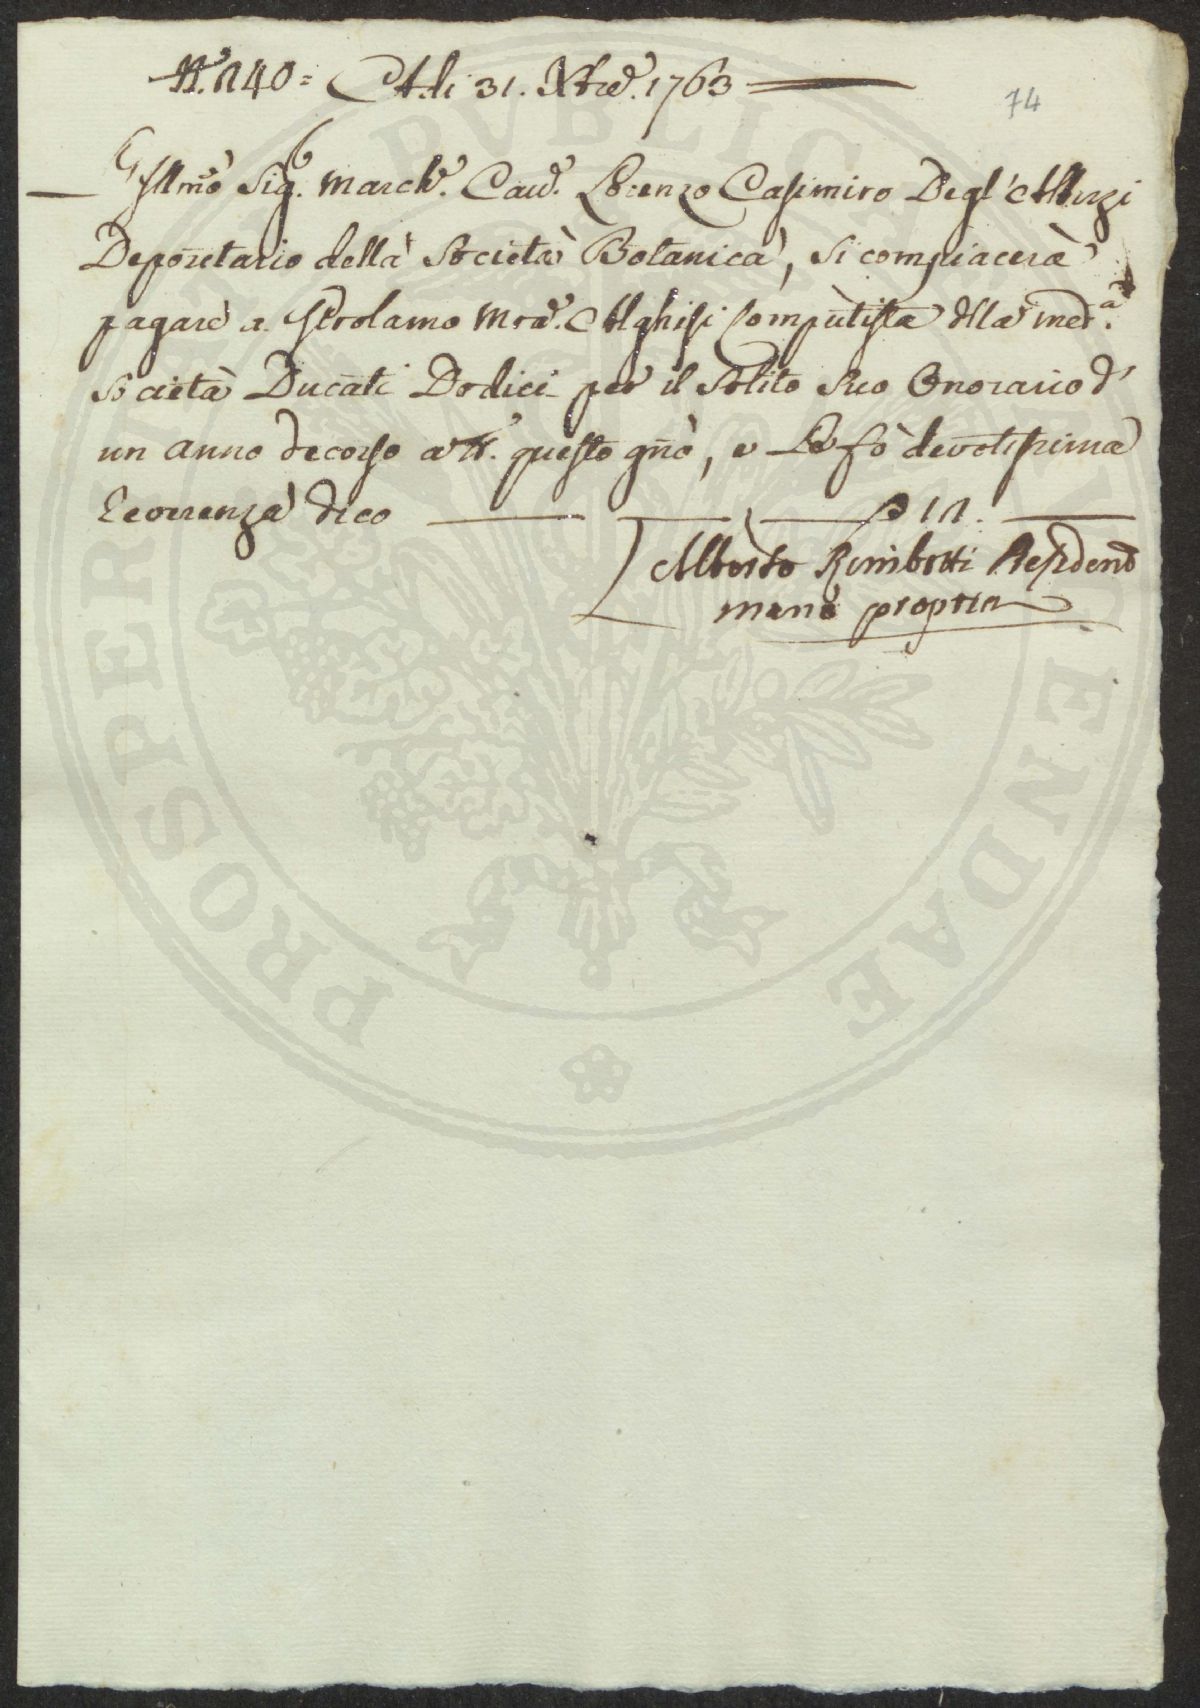 N.° 240 = A di 31. Xbre. 1763
74
Illmo Sig. March.e Cav.e Lorenzo Casimiro Degl'Albizi
Deposetario della Società Botanica, si compiacerà
pagare a Girolamo Mra. Alghisi Computista dlla med.a
Società Ducati Dodici per il solito suo Onorario d'
un anno decorso a tt. questo gno, e Le fò devotissima
reverenza dico 12.
Alberto Rimbotti Presidente
mano propria
PVBLICAE
PROSPERITATI AVGENDAE